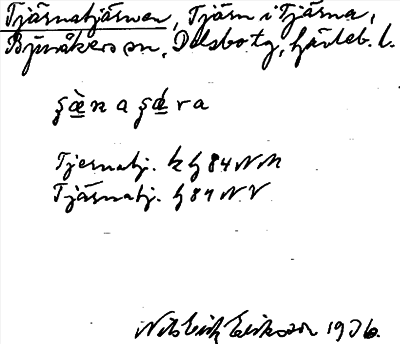 Tjärnatjärnen, Tjärn i Tjärna,
Bjuråkers sn, Delsbo tg, Gävleb. l.
Tjernatj. k G 84 NM
Tjärnatj. G 84 NV
Nils Erik Eriksson 1936.